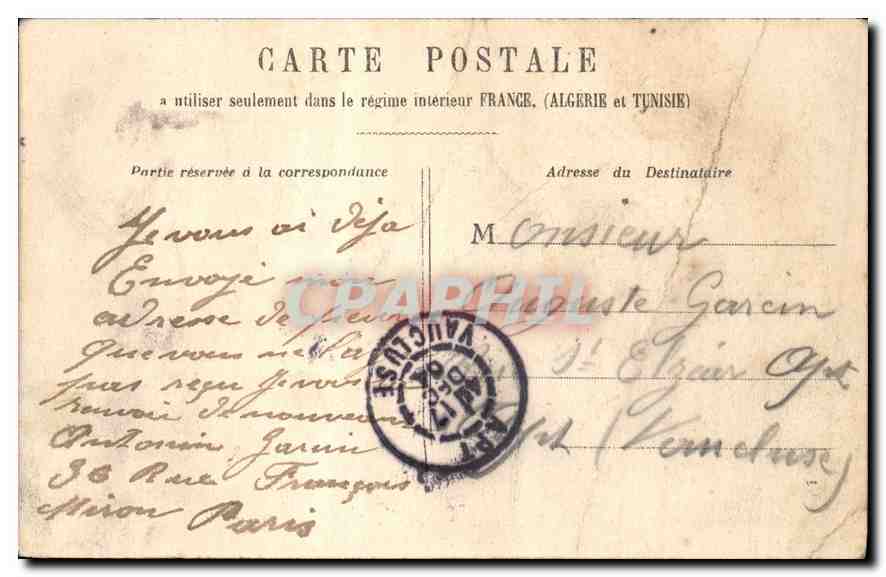 CARTE POSTALE
a utiliser seulement dans le régime intérieur FRANCE, (ALGERIE et TUNISIE)
Partie réservée à la correspondance
Adresse du Destinataire
Je vous ai déja
Envoyé mon
adresse de peur
que vous ne l'ay
pas reçu Je vous
renvoie de nouveau
Antonin Garcin
36 Rue François
Miron Paris
Monsieur
Auguste Garcin
St Elzéar Apt
Apt (Vaucluse)
APT
VAUCLUSE
17
DEC
04
CPAPHIL